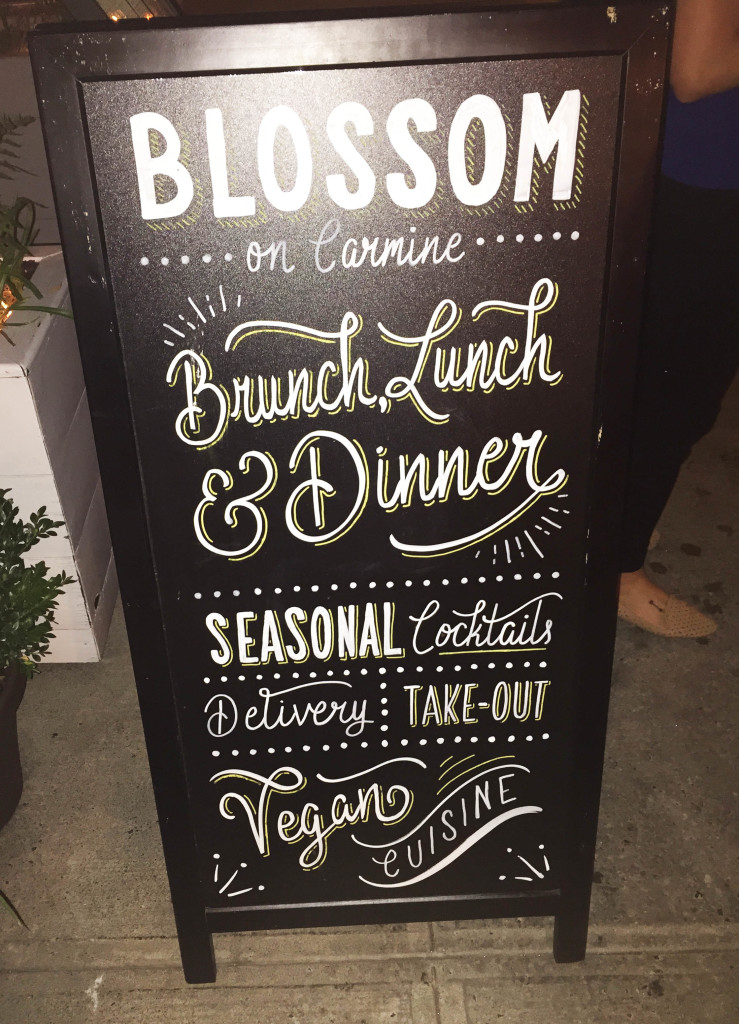 BLOSSOM
on Carmine
Brunch, Lunch
& Dinner
SEASONAL Cocktails
Delivery TAKE-OUT
Vegan CUISINE